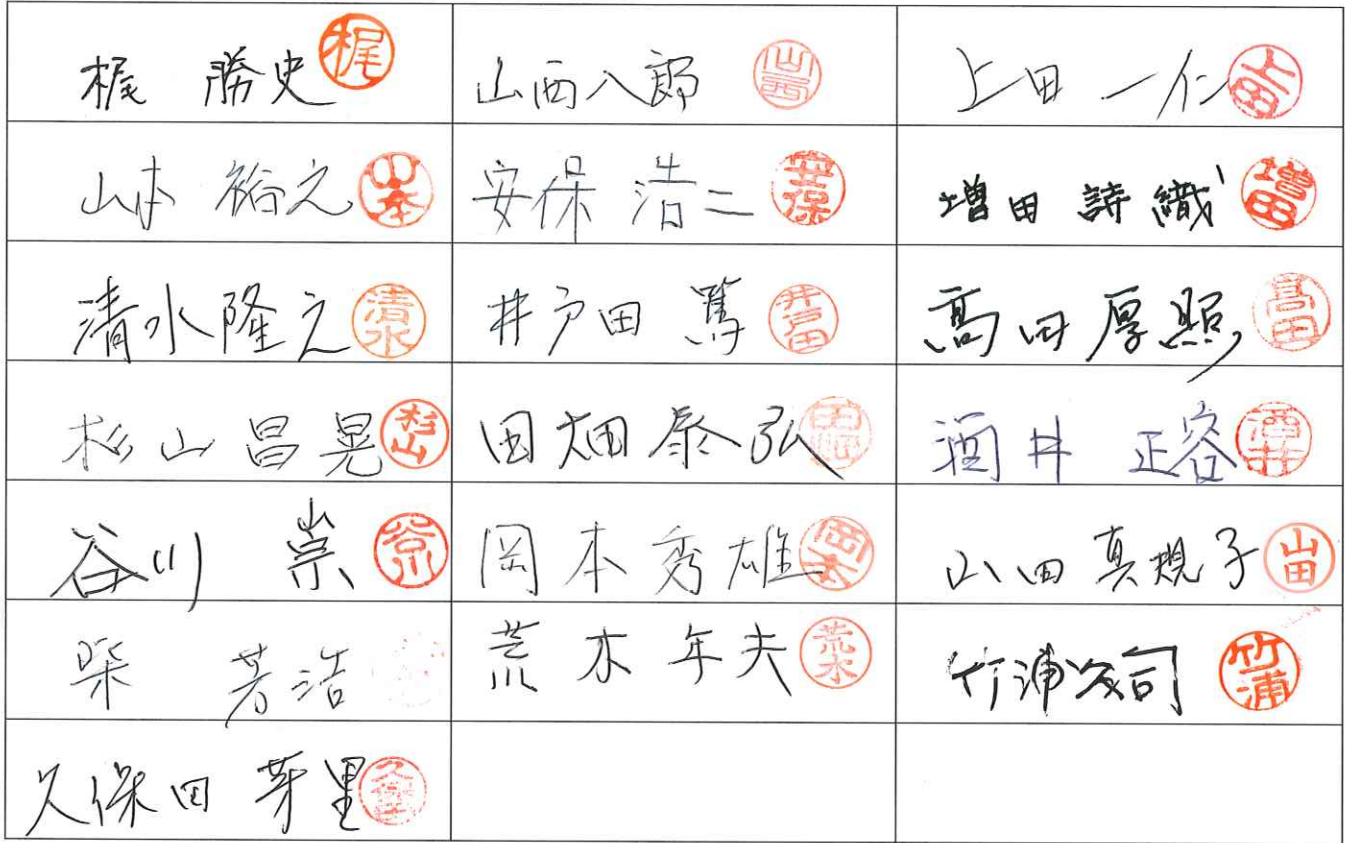 梶 勝史 梶 山西八郎 山西 上田 一仁 上田
山本 裕之 山本 安保 浩二 安保 増田 詩織 増田
清水隆之 清水 井戸田 篤 井戸田 髙田厚照 髙田
杉山昌晃 杉山 田畑泰弘 田畑 酒井 正容 酒井
谷川 崇 谷川 岡本秀雄 岡本 山田真規子 山田
芳浩 荒木年夫 荒木 竹浦次司 竹浦
久保田 芽里 久保田